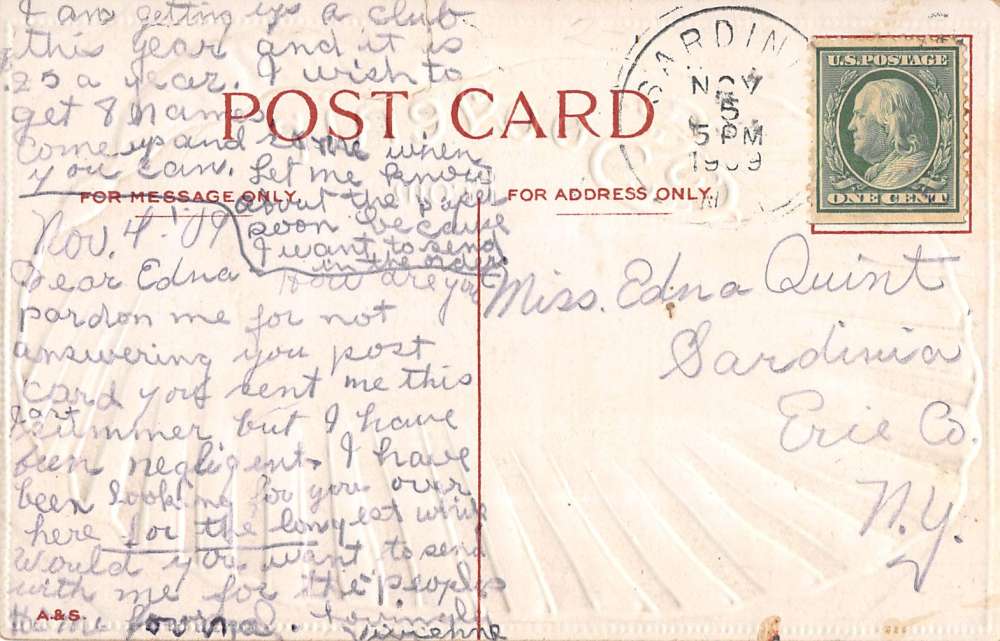 I am getting up a club
this year and it is
.25 a year. I wish to
get 8 names
come up and see me when
you can. Let me know
about the paper
soon because
I want to send
in the order.
POST CARD
FOR MESSAGE ONLY
Nov. 4. '09
Dear Edna How are you
pardon me for not
answering you post
card you sent me this
last
summer, but I have
been negligent. I have
been looking for you over
here for the longest while
Would you want to send
with me for the peoples
Home Journal.
A & S.
FOR ADDRESS ONLY
SARDIN
NOV
5
5 PM
1909
U.S. POSTAGE
ONE CENT
Miss. Edna Quint
Sardinia
Erie Co.
N.Y.